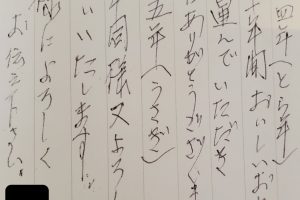 四年(とら年)
十年間おいしいお
運んでいただき
にありがとうござい
五年(うさぎ)
年同様又よろし
いいたします。
様によろしく
お伝え下さい。